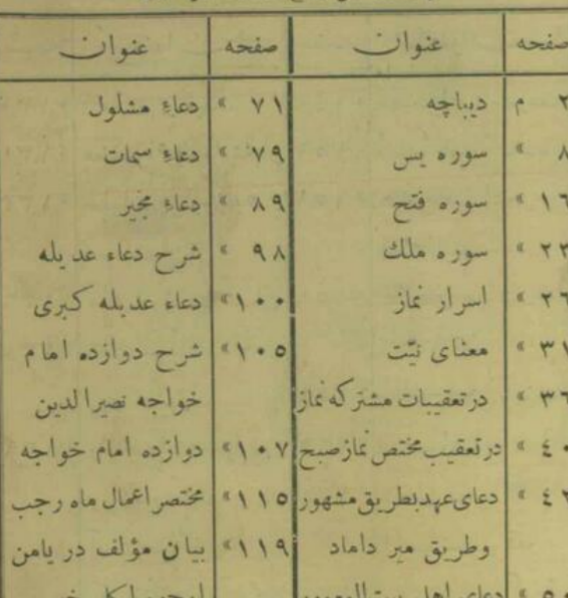 صفحه عنوان
۲ م دیباچه
۸ » سوره یس
۱۶ » سوره فتح
۲۳ » سوره ملك
۲۶ » اسرار نماز
۳۱ » معنای نیّت
۳۶ » درتعقیبات مشترکه نماز
۴۰ » درتعقیب مختص نمازصبح
۴۲ » دعای عهد بطریق مشهور
وطریق میر داماد
دعای اهل
صفحه عنوان
۷۱ » دعاء مشلول
۷۹ » دعاء سمات
۸۹ » دعاء مجیر
۹۸ » شرح دعاء عدیله
۱۰۰ » دعاء عدیله کبری
۱۰۵ » شرح دوازده امام
خواجه نصیرالدین
۱۰۷ » دوازده امام خواجه
۱۱۵ » مختصر اعمال ماه رجب
۱۱۹ » بیان مؤلف در یامن